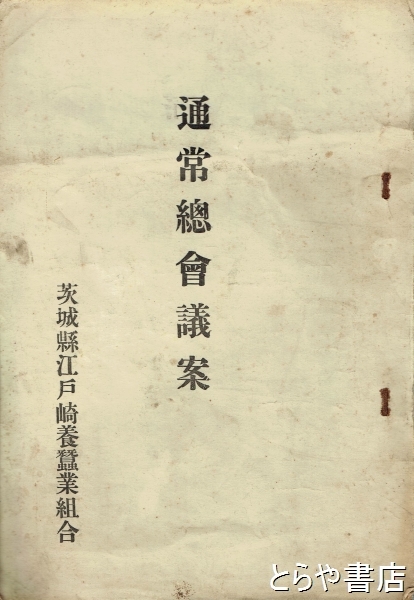 通常總會議案
茨城縣江戶崎養蠶業組合
とらや書店